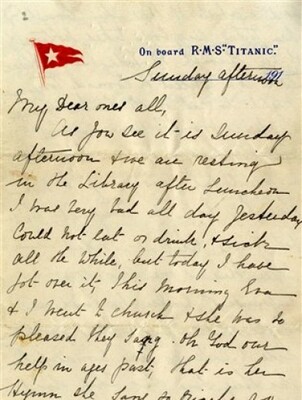 On board R·M·S "TITANIC."
Sunday afternoon
191
My Dear ones all,
As you see it is Sunday
afternoon & we are resting
in the Library after Luncheon
I was very bad all day Yesterday
Could not eat or drink, & sick
all the while, but today I have
got over it, This Morning Eva
& I went to church & she was so
pleased they sang Oh God our
help in ages past, that is her
Hymn she sang so